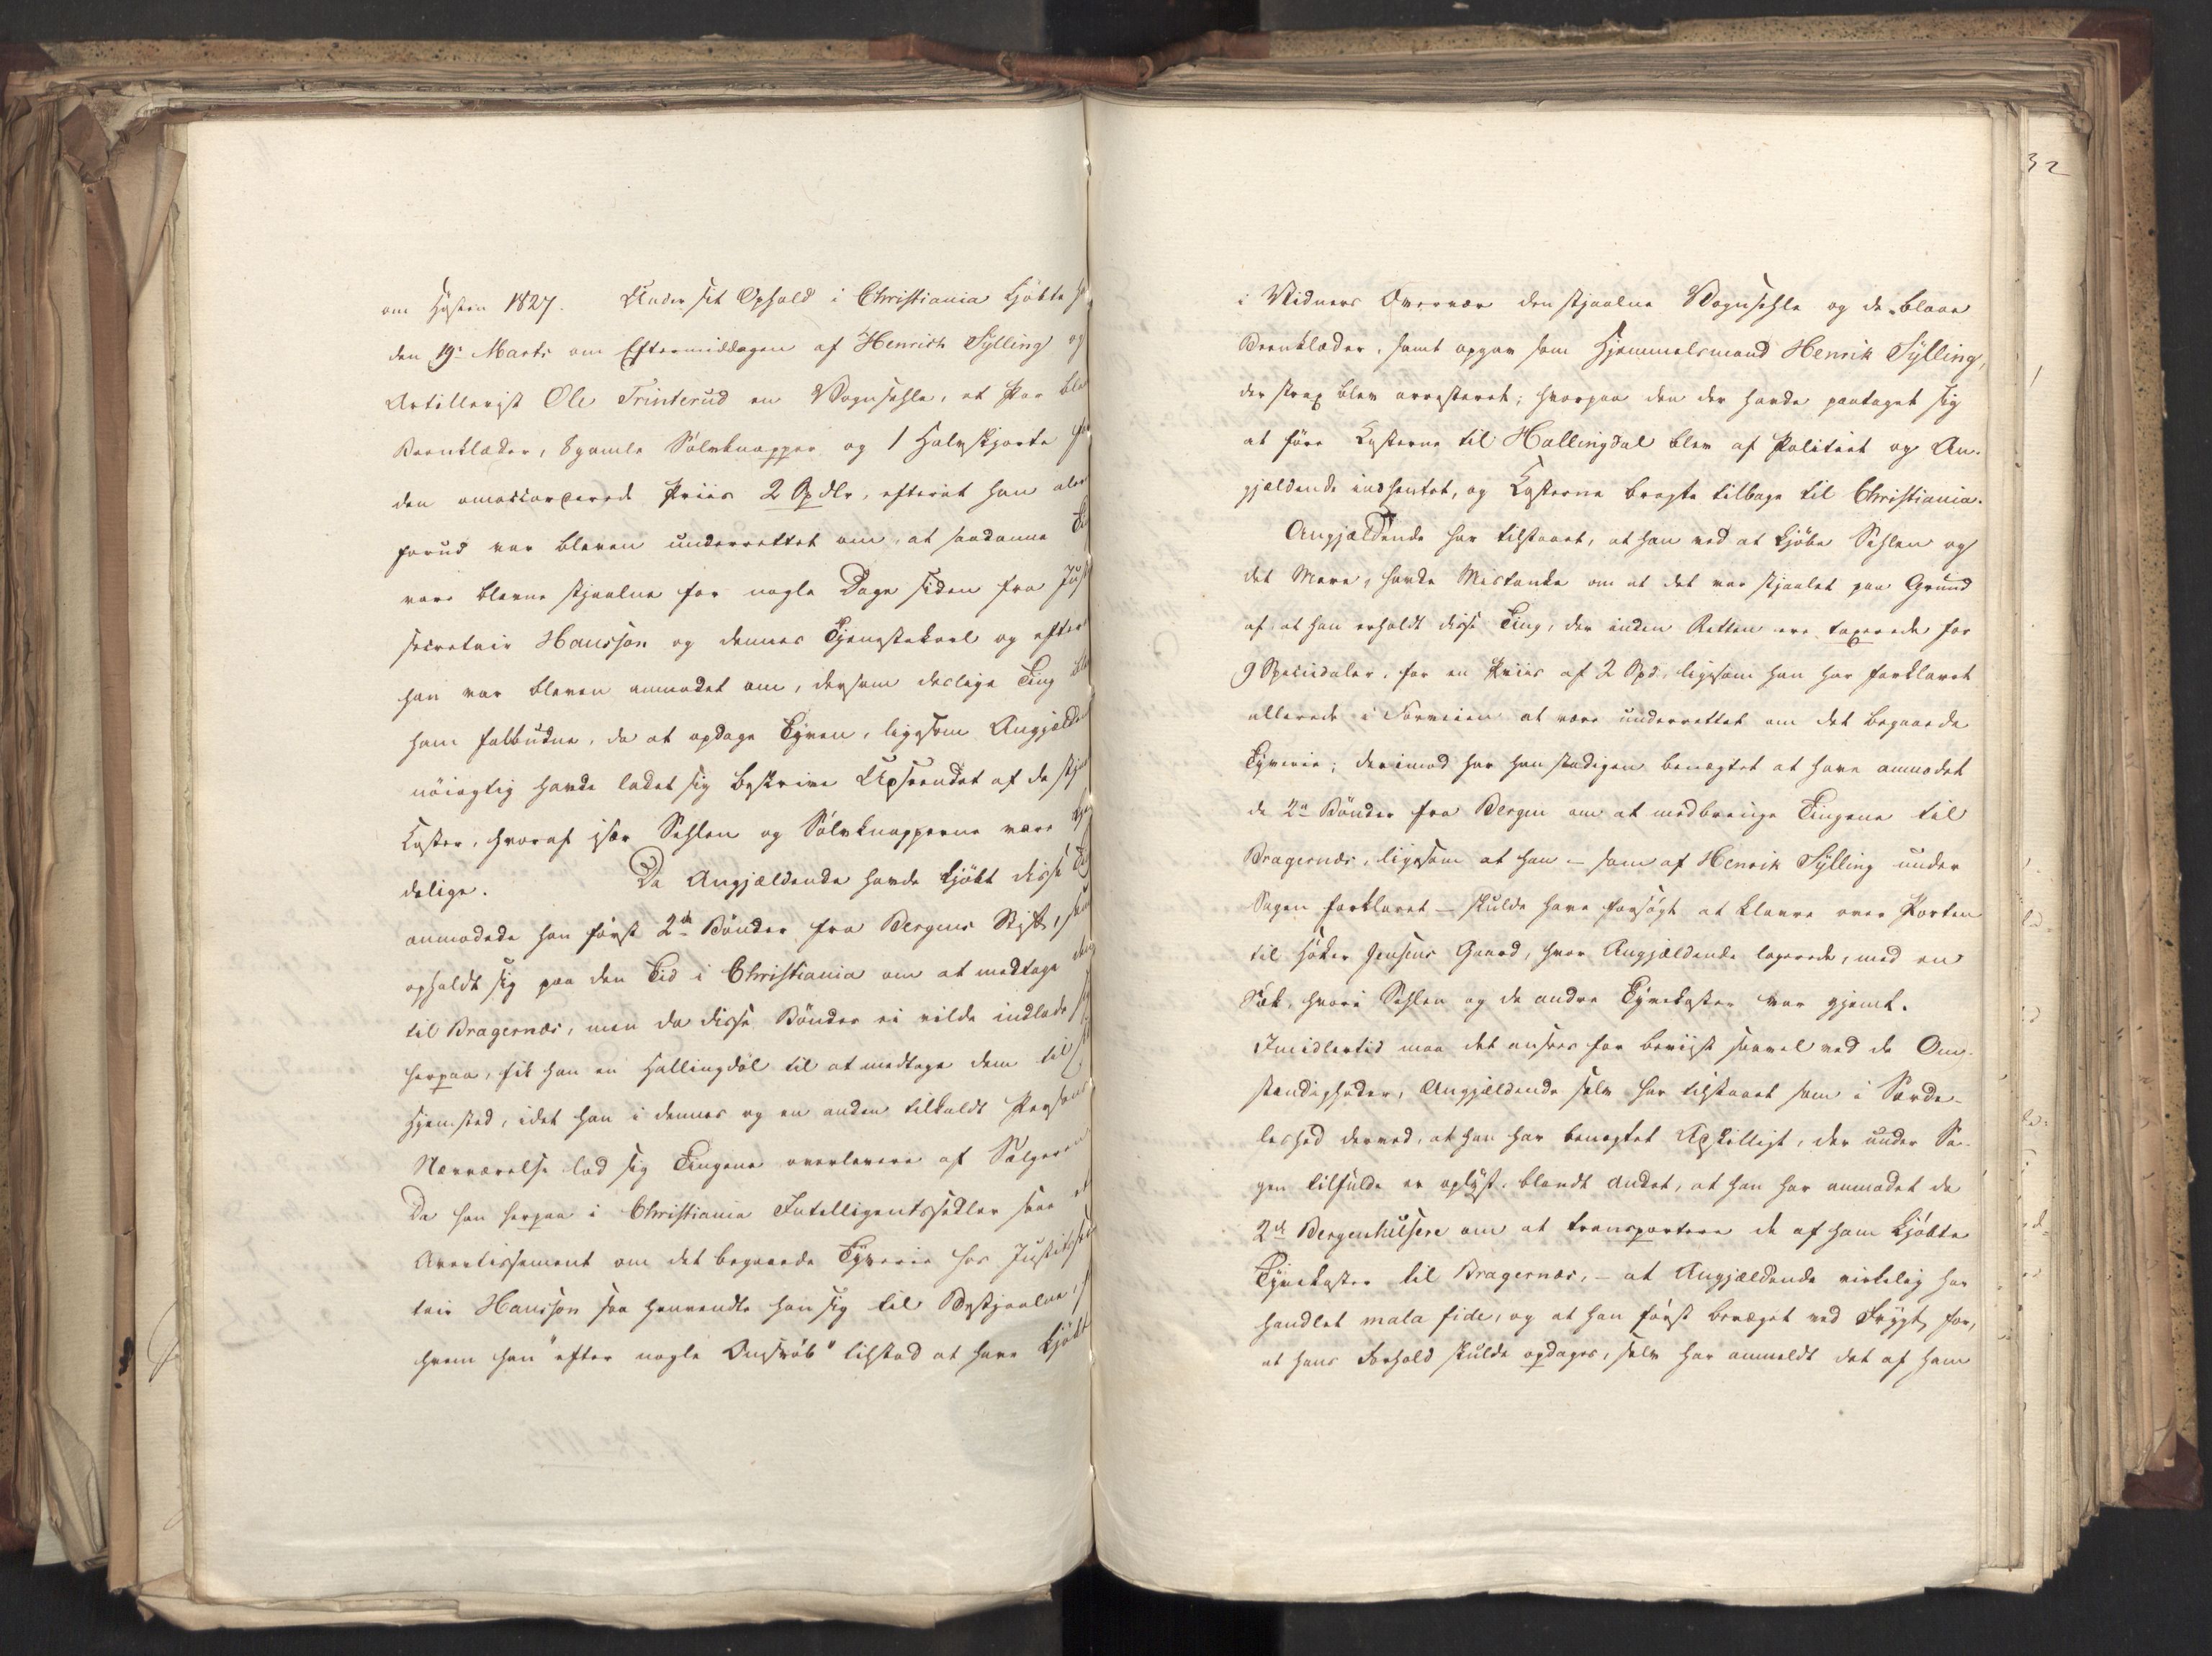 om Høsten 1827. Under sit Ophold i Christiania kjöbte
den 19de Marts om Eftermiddagen af Henrich Sylling og
Artillerist Ole Trinterud en Vognsehle, et Par
Beenklæder, 8 gamle Sölvknapper og 1 Halvskjorte for
den omaccorderede Priis 2 Spdlr, efterat han
forud var bleven underrettet om, at saadanne
vare blevne stjaalne for nogle Dage siden fra
secretair Hansson og dennes Tjenestekarl og
han var bleven anmodet om, dersom deslige Ting
ham falbudne, da at opdage Tyven, ligesom
nöiagtig havde ladet sig beskrive Udseendet af de
Koster, hvoraf især Sehlen og Sölvknapperne vare
delige. Da Angjældende havde kjöbt disse
anmodede han först 2de Bönder fra Bergens Stift,
opholdt sig paa den Tid i Christiania om at medtage
til Bragernæs, men da disse Bönder ei vilde indlade
herpaa, fik han en Hallingdöl til at medtage dem til
Hjemsted, idet han i dennes og en anden tilkaldt
Nærværelse lod sig Tingene overlevere af
Da han herpaa i Christiania Intelligentssedler saae
Avertissement om det begaaede Tyverie hos
tair Hansson saa henvendte han sig til Bestjaalne,
hvem han "efter nogle Omsvöb" tilstod at have kjöbt
32
i Vidners Overvær den stjaalne Vognsehle og de blaae
Beenklæder, samt opgav som Hjemmelsmand Henrik Sylling,
der strax blev arresteret; hvorpaa den der havde paataget sig
at före Kosterne til Hallingdal blev af Politiet og An-
gjældende indhentet, og Kosterne bragte tilbage til Christiania.
Angjældende har tilstaaet, at han ved at kjöbe Sehlen og
det Mere, havde Mistanke om at det var stjaalet paa Grund
af at han erholdt disse Ting, der inden Retten ere taxerede for
9 Speciedaler, for en Priis af 2 Spd. ligesom han har forklaret
allerede i Forveien at være underrettet om det begaaede
Tyverie; derimod har han stadigen benægtet at have anmodet
de 2de Bönder fra Bergen om at medbringe Tingene til
Bragernæs, ligesom at han – som af Henrik Sylling under
Sagen forklaret – skulde have forsögt at klavre over Porten
til Höker Jensens Gaard, hvor Angjældende logerede, med en
Sæk, hvori Sehlen og de andre Tyvekoster var gjemt.
Imidlertid maa det ansees for beviist saavel ved de Om-
stændigheder, Angjældende selv har tilstaaet som i Særde-
leshed derved, at han har benægtet Adskilligt, der under Sa-
gen tilfulde er oplyst, blandt Andet, at han har anmodet de
2de Bergenhuusere om at transportere de af ham kjöbte
Tyvekoster til Bragernæs, – at Angjældende virkelig har
handlet mala fide, og at han först bevæget ved Frygt for,
at hans Forhold skulde opdages, selv har anmeldt det af ham